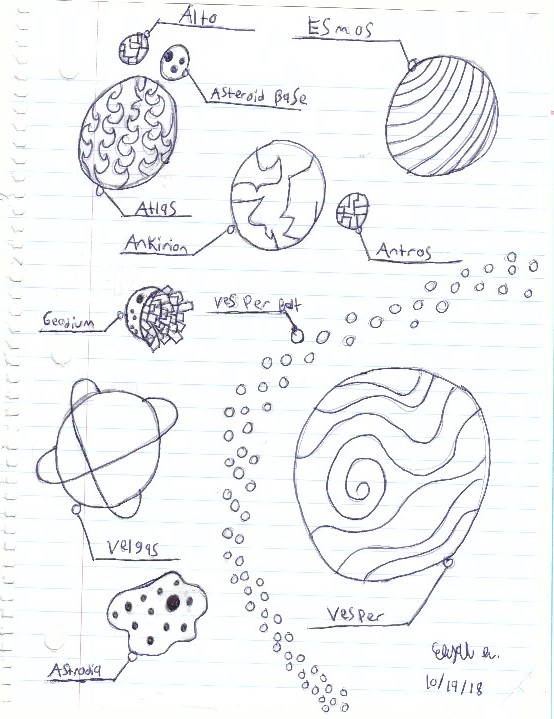 Alto
Esmos
Asteroid Base
Atlas
Ankirion
Antros
Geodium
Vesper Belt
Velgas
Vesper
Astrodia
10/19/18